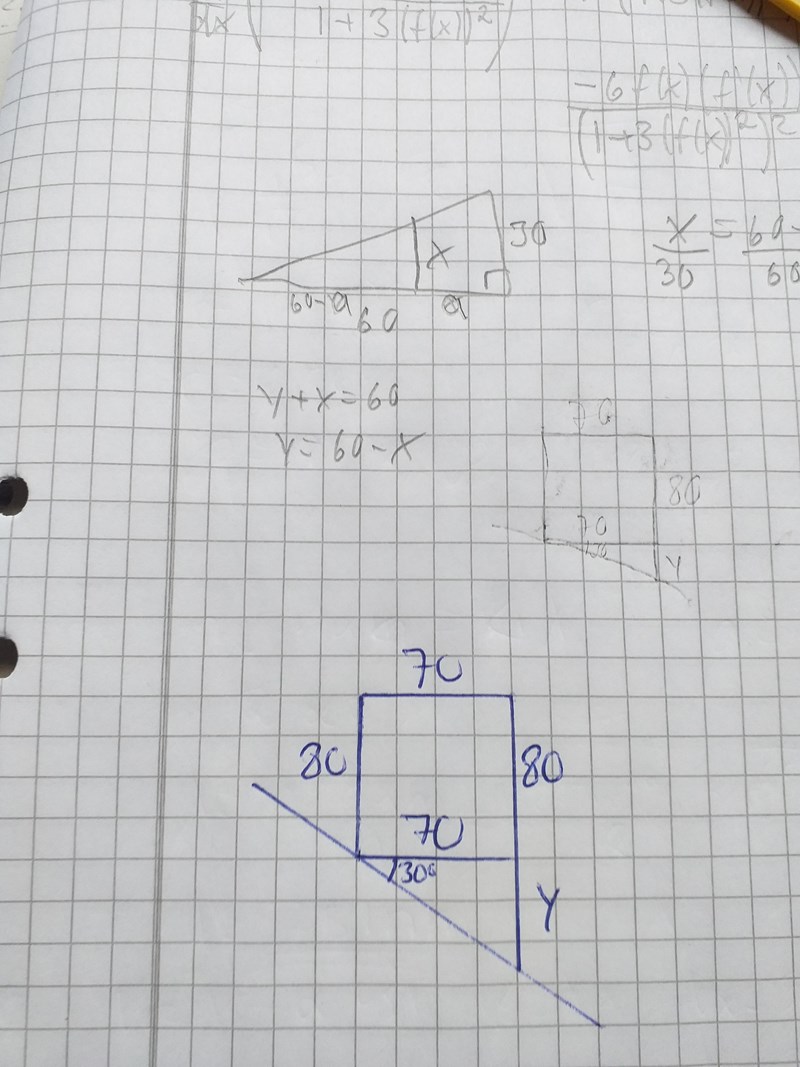 1+3(f(x))²
-6f(x)(f'(x))
(1+3(f(x)²)²
x
30
60-a
60
a
x/30 = 60-/60
y+x=60
y=60-x
70
80
70
y
70
80
80
70
30°
y